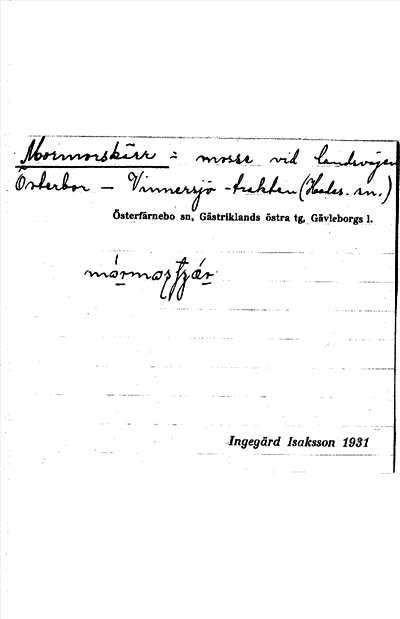 Mormorskärr = mosse vid landsvägen
Österbor – Vinnersjö-trakten (Hedes. sn.)
Österfärnebo sn, Gästriklands östra tg, Gävleborgs l.
Ingegärd Isaksson 1931